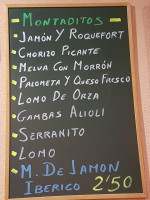 MONTADITOS
JAMÓN Y ROQUEFORT
CHORIZO PICANTE
MELVA CON MORRÓN
PALOMETA Y QUESO FRESCO
LOMO DE ORZA
GAMBAS ALIOLI
SERRANITO
LOMO
M. DE JAMON
IBERICO 2'50